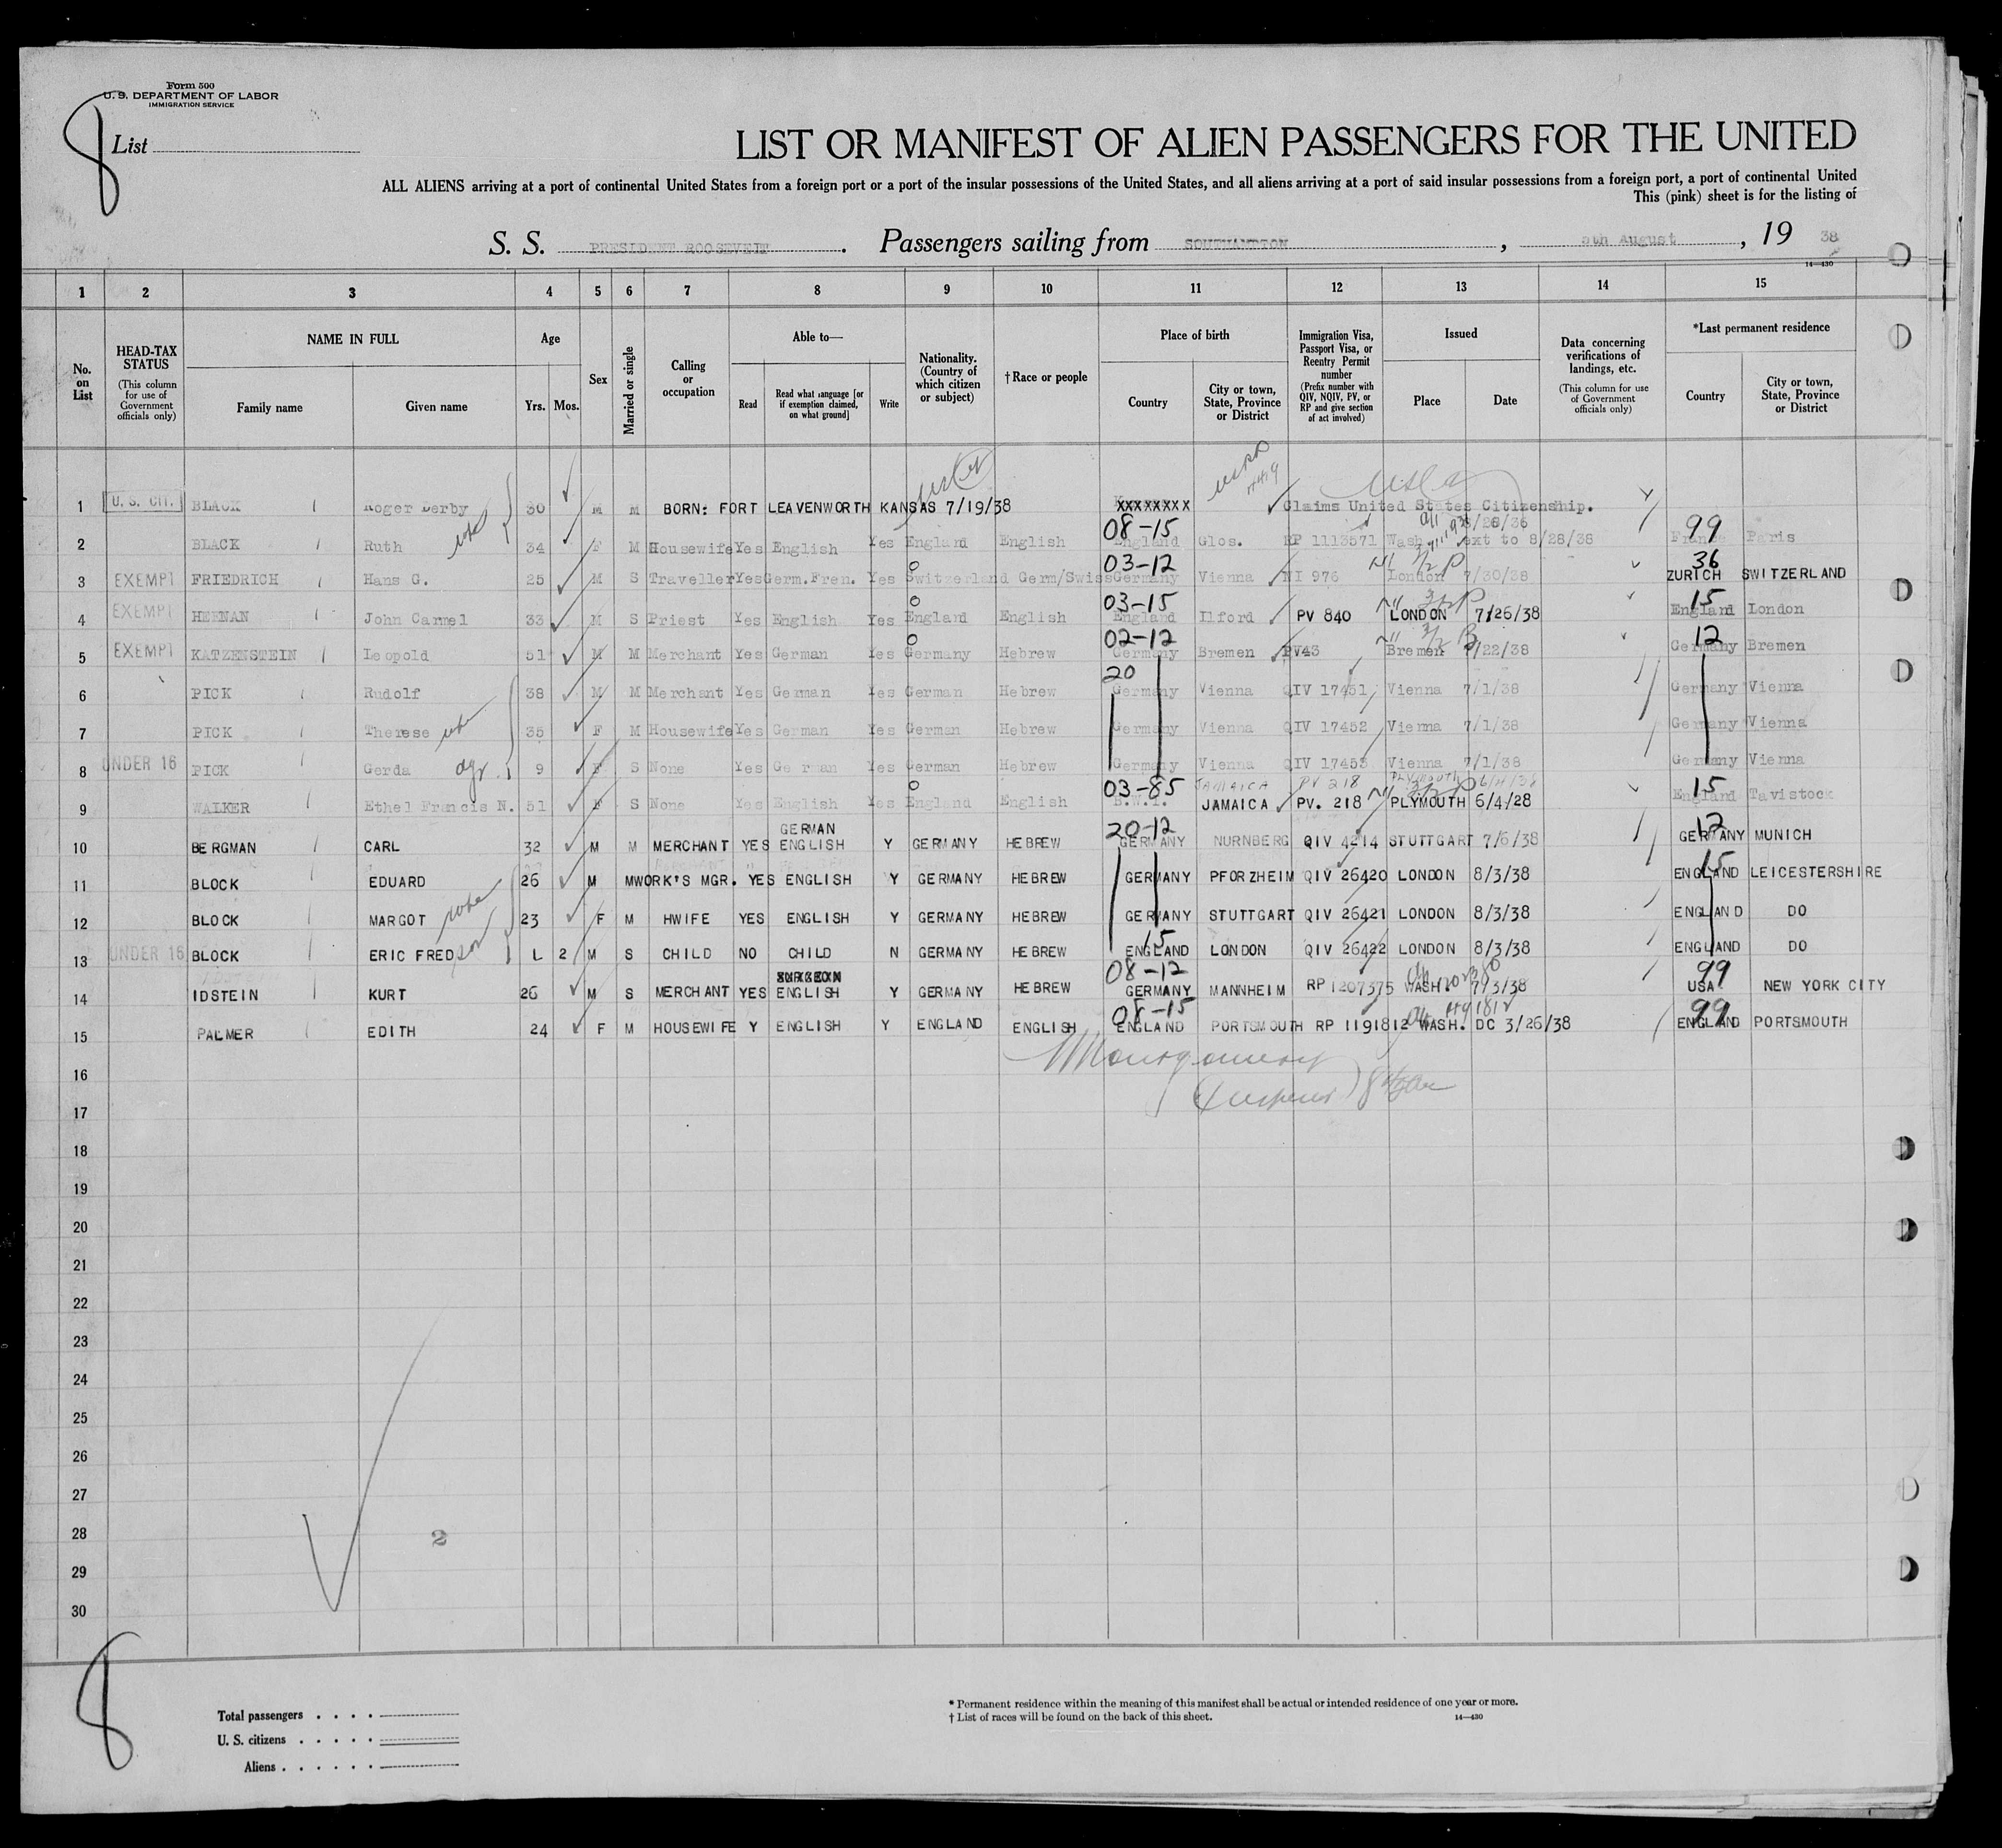 Form 500
U. S. DEPARTMENT OF LABOR
IMMIGRATION SERVICE
8
List
LIST OR MANIFEST OF ALIEN PASSENGERS FOR THE UNITED
ALL ALIENS arriving at a port of continental United States from a foreign port or a port of the insular possessions of the United States, and all aliens arriving at a port of said insular possessions from a foreign port, a port of continental United
This (pink) sheet is for the listing of
S. S. PRESIDENT ROOSEVELT. Passengers sailing from SOUTHAMPTON, 5th August, 19 38
14—430
1 2 3 4 5 6 7 8 9 10 11 12 13 14 15
No. on List
HEAD-TAX STATUS (This column for use of Government officials only)
NAME IN FULL
Family name Given name
Age
Yrs. Mos.
Sex
Married or single
Calling or occupation
Able to—
Read Read what language [or if exemption claimed, on what ground] Write
Nationality. (Country of which citizen or subject)
†Race or people
Place of birth
Country City or town, State, Province or District
Immigration Visa, Passport Visa, or Reentry Permit number (Prefix number with QIV, NQIV, PV, or RP and give section of act involved)
Issued
Place Date
Data concerning verifications of landings, etc. (This column for use of Government officials only)
*Last permanent residence
Country City or town, State, Province or District
1 U. S. CIT. BLACK Roger Derby 30 M M BORN: FORT LEAVENWORTH KANSAS 7/19/38 XXXXXXXX Claims United States Citizenship.
08-15 8/28/36 99
2 BLACK Ruth wife 34 F M Housewife Yes English Yes England English England Glos. RP 1113571 Wash. ext to 8/28/38 France Paris
03-12 36
3 EXEMPT FRIEDRICH Hans G. 25 M S Traveller Yes Germ.Fren. Yes Switzerland Germ/Swiss Germany Vienna NI 976 London 7/30/38 ZURICH SWITZERLAND
03-15 15
4 EXEMPT HEENAN John Carmel 33 M S Priest Yes English Yes England English England Ilford PV 840 LONDON 7/26/38 England London
02-12 12
5 EXEMPT KATZENSTEIN Leopold 51 M M Merchant Yes German Yes Germany Hebrew Germany Bremen PV43 Bremen 7/22/38 Germany Bremen
20
6 PICK Rudolf 38 M M Merchant Yes German Yes German Hebrew Germany Vienna QIV 17451 Vienna 7/1/38 Germany Vienna
7 PICK Therese wife 35 F M Housewife Yes German Yes German Hebrew Germany Vienna QIV 17452 Vienna 7/1/38 Germany Vienna
8 UNDER 16 PICK Gerda 9 F S None Yes German Yes German Hebrew Germany Vienna QIV 17453 Vienna 7/1/38 Germany Vienna
03-85 JAMAICA PV 218 PLYMOUTH 15
9 WALKER Ethel Francis N. 51 F S None Yes English Yes England English B.W.I. JAMAICA PV. 218 PLYMOUTH 6/4/28 England Tavistock
GERMAN 20-12 12
10 BERGMAN CARL 32 M M MERCHANT YES ENGLISH Y GERMANY HEBREW GERMANY NURNBERG QIV 4214 STUTTGART 7/6/38 GERMANY MUNICH
15
11 BLOCK EDUARD 26 M M WORK'S MGR. YES ENGLISH Y GERMANY HEBREW GERMANY PFORZHEIM QIV 26420 LONDON 8/3/38 ENGLAND LEICESTERSHIRE
12 BLOCK MARGOT wife 23 F M HWIFE YES ENGLISH Y GERMANY HEBREW GERMANY STUTTGART QIV 26421 LONDON 8/3/38 ENGLAND DO
15
13 UNDER 16 BLOCK ERIC FRED son L 2 M S CHILD NO CHILD N GERMANY HEBREW ENGLAND LONDON QIV 26422 LONDON 8/3/38 ENGLAND DO
08-12 99
14 IDSTEIN KURT 26 M S MERCHANT YES ENGLISH Y GERMANY HEBREW GERMANY MANNHEIM RP 1207375 WASH. 7/3/38 USA NEW YORK CITY
08-15 99
15 PALMER EDITH 24 F M HOUSEWIFE Y ENGLISH Y ENGLAND ENGLISH ENGLAND PORTSMOUTH RP 1191812 WASH. DC 3/26/38 ENGLAND PORTSMOUTH
16 Montgomery
17
18
19
20
21
22
23
24
25
26
27
28 2
29
30
8
Total passengers . . . .
U. S. citizens . . . . .
Aliens . . . . . .
* Permanent residence within the meaning of this manifest shall be actual or intended residence of one year or more.
† List of races will be found on the back of this sheet.
14—430